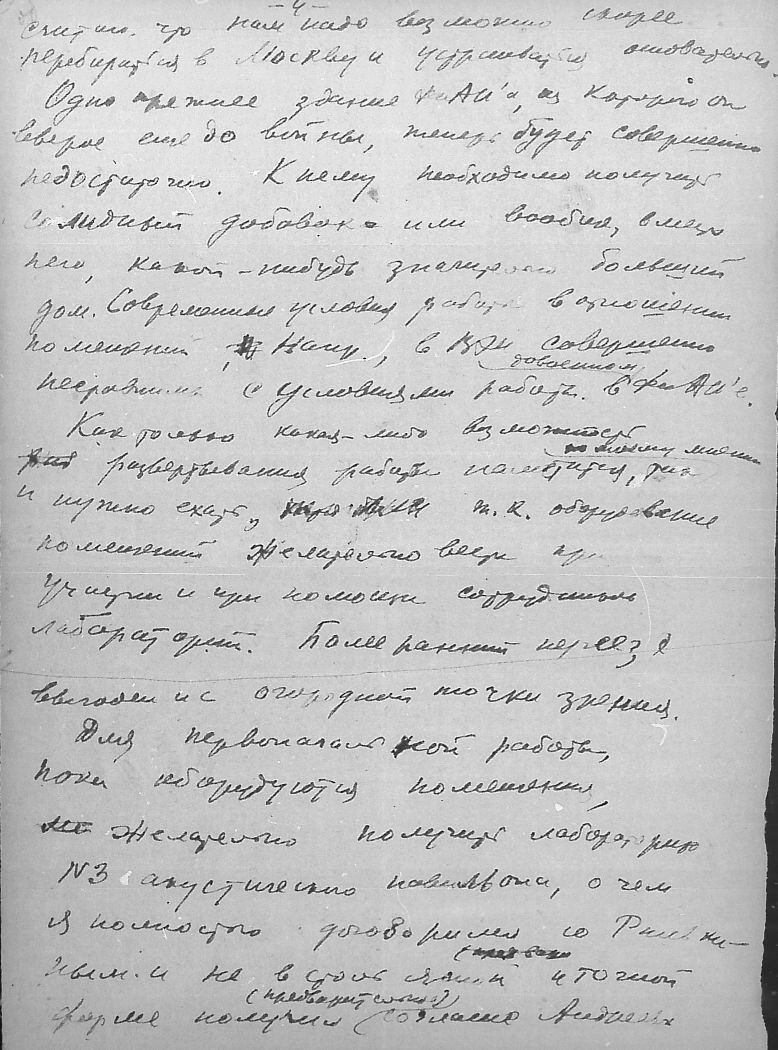 4
считаю, что нам надо возможно скорее
перебираться в Москву и устраиваться основательно.
Одно прежнее здание ФиАН'а, из которого он
вырос еще до войны, теперь будет совершенно
недостаточно. К нему необходимо получить
солидный добавок или вообще, вместо
него, какой-нибудь значительно больший
дом. Современные условия работы в отношении
помещений, Напр., в совершенно
довоенными
несравнимы с условиями работы в ФиАН'е.
Как только какая-либо возможность
по моему мнению
развертывания работы наметится,
и нужно ехать, т.к. оборудование
помещений желательно вести при
участии и при помощи сотрудников
лабораторий. Более ранний переезд
выгоден и с огородной точки зрения.
Для первоначальной работы,
пока оборудуются помещения,
желательно получить лабораторию
N3 акустического павильона, о чем
я полностью договорился со Рытки-
ным и не в столь ясной и точной
(предварительное)
форме получил согласие Андреева